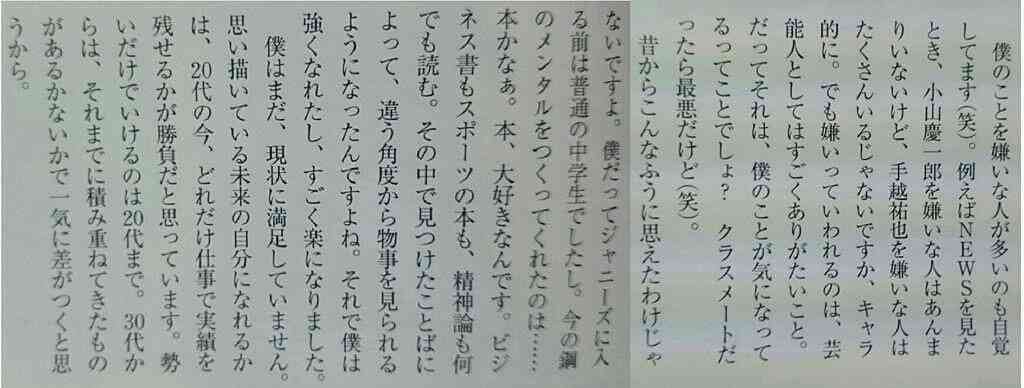 僕のことを嫌いな人が多いのも自覚
してます(笑)。例えばNEWSを見た
とき、小山慶一郎を嫌いな人はあんま
りいないけど、手越祐也を嫌いな人は
たくさんいるじゃないですか、キャラ
的に。でも嫌いっていわれるのは、芸
能人としてはすごくありがたいこと。
だってそれは、僕のことが気になって
るってことでしょ？　クラスメートだ
ったら最悪だけど(笑)。
昔からこんなふうに思えたわけじゃ
ないですよ。僕だってジャニーズに入
る前は普通の中学生でしたし。今の鋼
のメンタルをつくってくれたのは……
本かなぁ。本、大好きなんです。ビジ
ネス書もスポーツの本も、精神論も何
でも読む。その中で見つけたことばに
よって、違う角度から物事を見られる
ようになったんですよね。それで僕は
強くなれたし、すごく楽になりました。
僕はまだ、現状に満足していません。
思い描いている未来の自分になれるか
は、20代の今、どれだけ仕事で実績を
残せるかが勝負だと思っています。勢
いだけでいけるのは20代まで。30代か
らは、それまでに積み重ねてきたもの
があるかないかで一気に差がつくと思
うから。